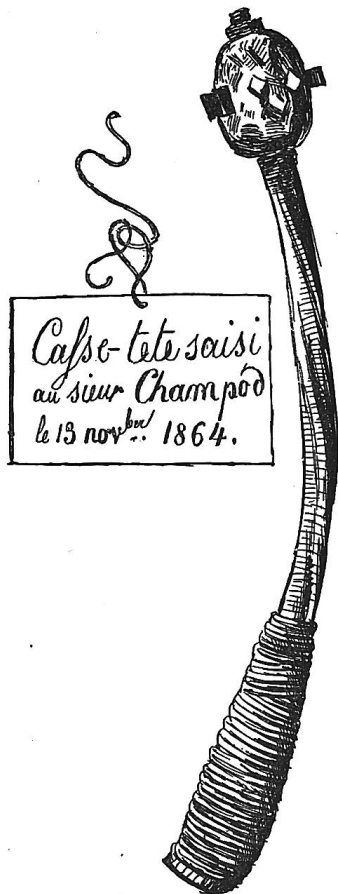 Casse-tete saisi
au sieur Champod
le 13 novber 1864.